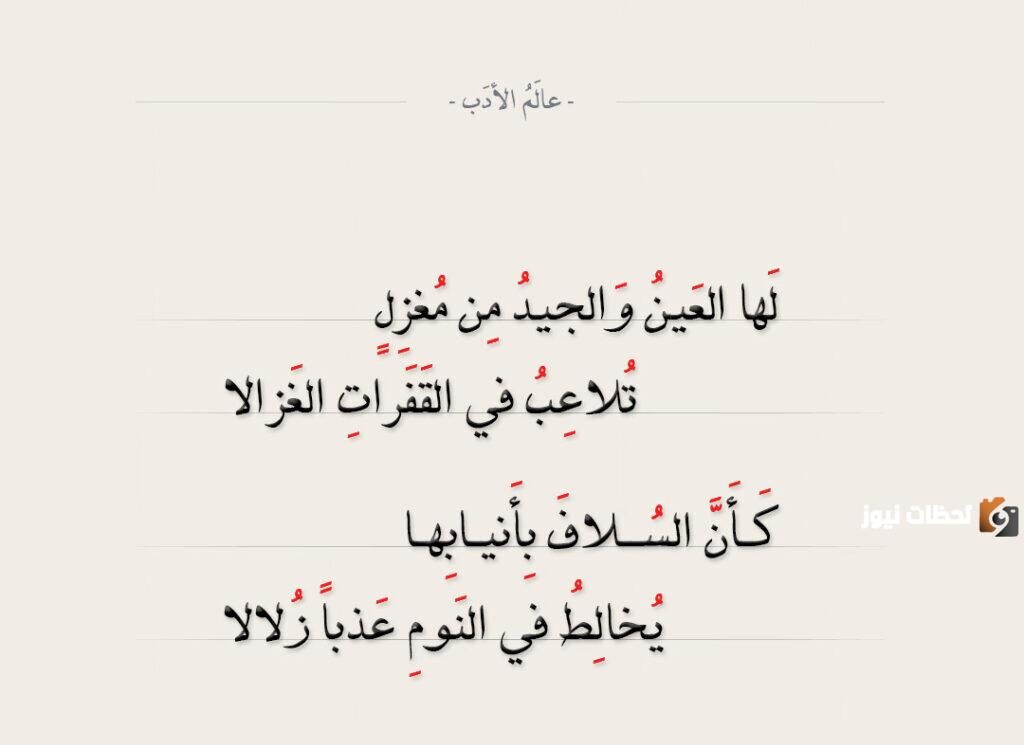 - عالَمُ الأدَب -
لَها العَينُ وَالجيدُ مِن مُغزِلٍ
تُلاعِبُ في القَفَراتِ الغَزالا
كَأَنَّ السُلافَ بِأَنيابِها
يُخالِطُ في النَومِ عَذباً زُلالا
لحظات نيوز